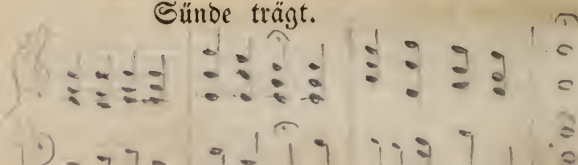 Sünde trägt.